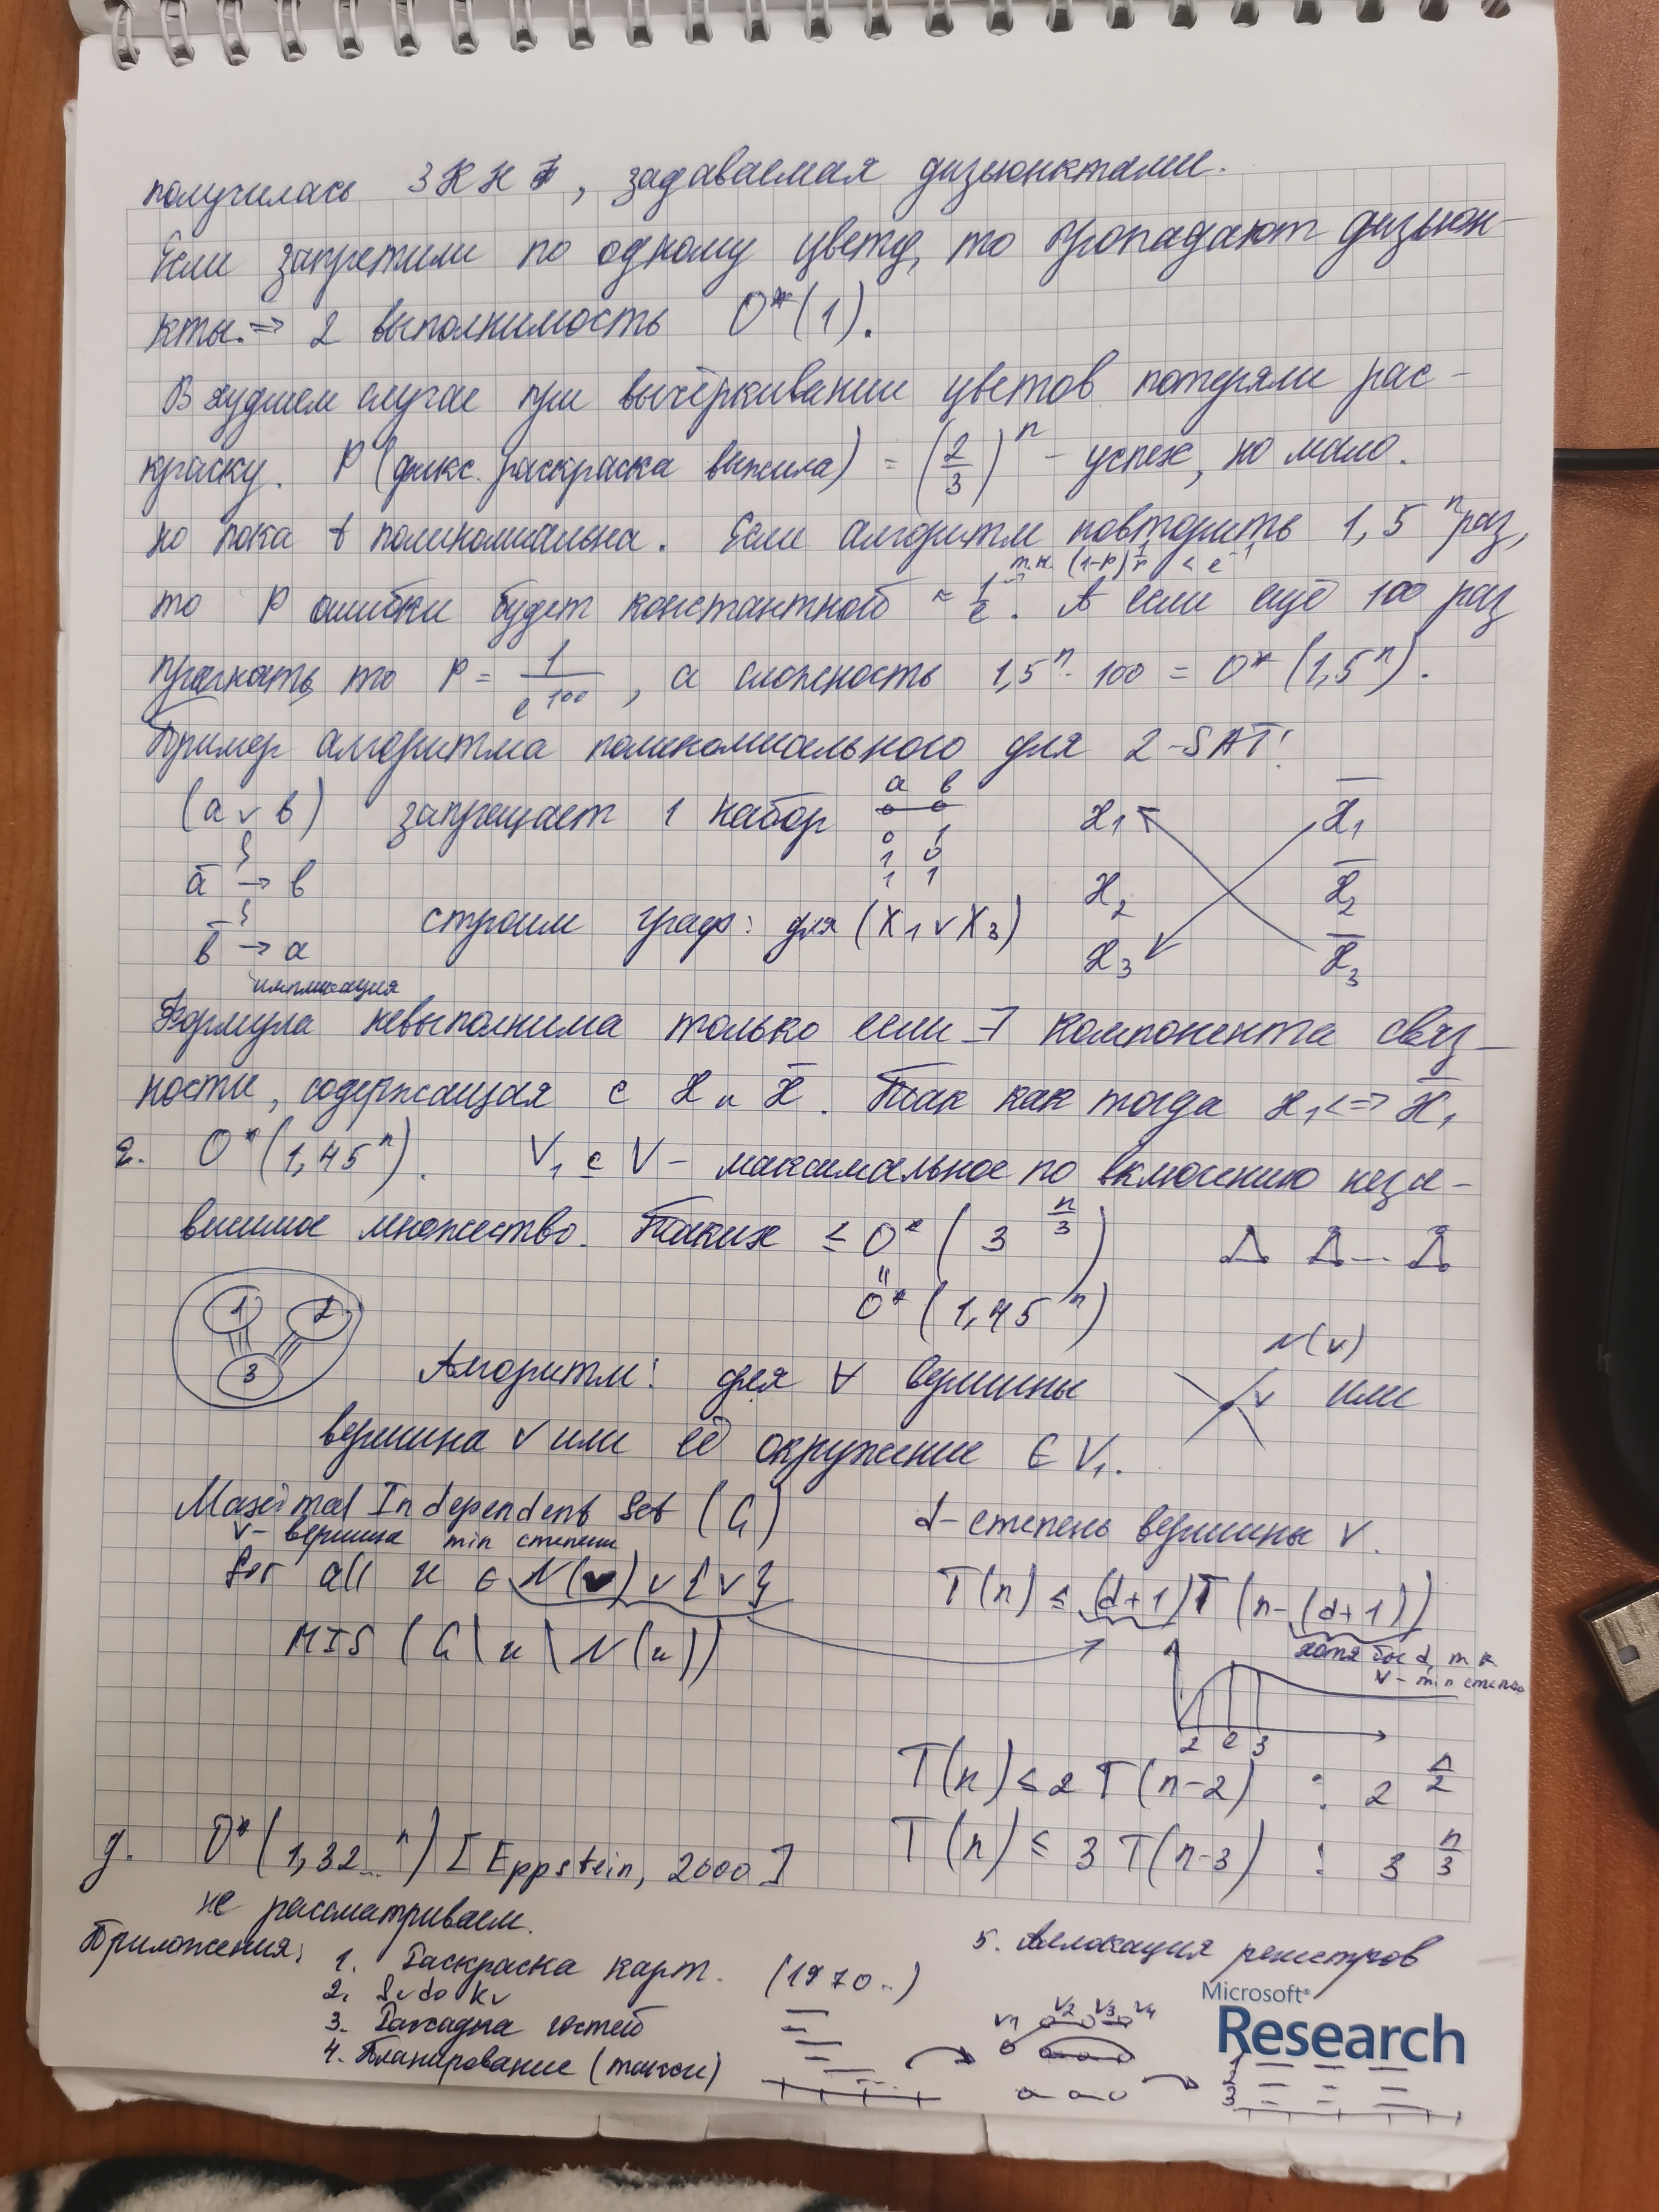 получилась 3КНФ, задаваемая дизъюнктами.
Если запретили по одному цвету, то пропадают дизъюн-
кты. => 2 выполнимость O*(1).
В худшем случае при вычёркивании цветов потеряли рас-
краску. P(фикс. раскраска выжила) = (2/3)^n - успех, но мало.
но пока t полиномиальна. Если алгоритм повторить 1,5^n раз,
т.к. (1-p)^(1/p) < e^-1
то P ошибки будет константной ≈ 1/e. А если ещё 100 раз
прогнать, то P = 1/e^100, а сложность 1,5^n · 100 = O*(1,5^n).
Пример алгоритма полиномиального для 2-SAT:
(a ∨ b) запрещает 1 набор
a b
0 0
0 1
1 0
1 1
ā → b
b̄ → a
импликация
строим граф: для (X1 ∨ X3)
x1 x̄1
x2 x̄2
x3 x̄3
Формула невыполнима только если ∃ компонента связ-
ности, содержащая с x и x̄. Так как тогда x1 <=> x̄1
2. O*(1,45^n). V1 ⊆ V - максимальное по включению неза-
висимое множество. Таких ≤ O*(3^(n/3))
=
O*(1,45^n)
1 2
3
N(v)
Алгоритм: для ∀ вершины v или
вершина v или её окружение ∈ V1.
Maximal Independent Set (G)
v - вершина min степени
for all u ∈ N(v) ∪ {v}
MIS (G \ u \ N(u))
d - степень вершины v.
T(n) ≤ (d+1) T(n-(d+1))
хотя бы d, т.к.
v - min степень
2 e 3
T(n) ≤ 2T(n-2) : 2^(n/2)
T(n) ≤ 3T(n-3) : 3^(n/3)
д. O*(1,32...^n) [Eppstein, 2000]
не рассматриваем.
Приложения:
1. Раскраска карт. (1970..)
2. Sudoku
3. Рассадка гостей
4. Планирование (такси)
5. Аллокация регистров
v1 v2 v3 v4
Microsoft®
Research
1
2
3